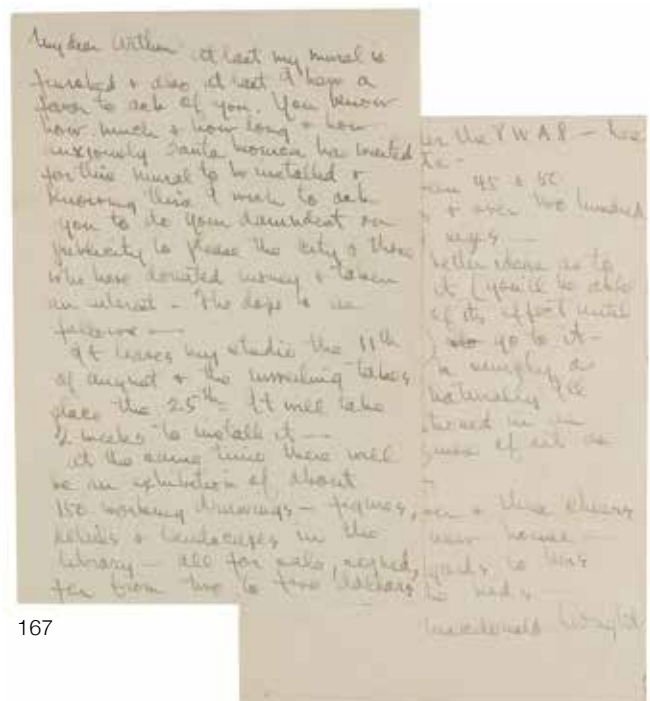 My dear Arthur: At last my mural is
finished & also at last I have a
favor to ask of you. You know
how much & how long & how
anxiously Santa Monica has waited
for this mural to be installed &
knowing this I wish to ask
you to do your damndest on
publicity to please the city & those
who have donated money & taken
an interest – The dope is as
follows —
It leaves my studio the 11th
of August & the unveiling takes
place the 25th – It will take
2 weeks to install it —
At the same time there will
be an exhibition of about
150 working drawings – figures,
details & landscapes in the
library – all for sale, signed,
for from two to five dollars
the P.W.A.P. –
45 &
& over two hundred
better idea as to
it (you'll be able
of its effect until
go to it –
naturally
in
of art as
& three cheers
new house —
to
Macdonald Wright
167